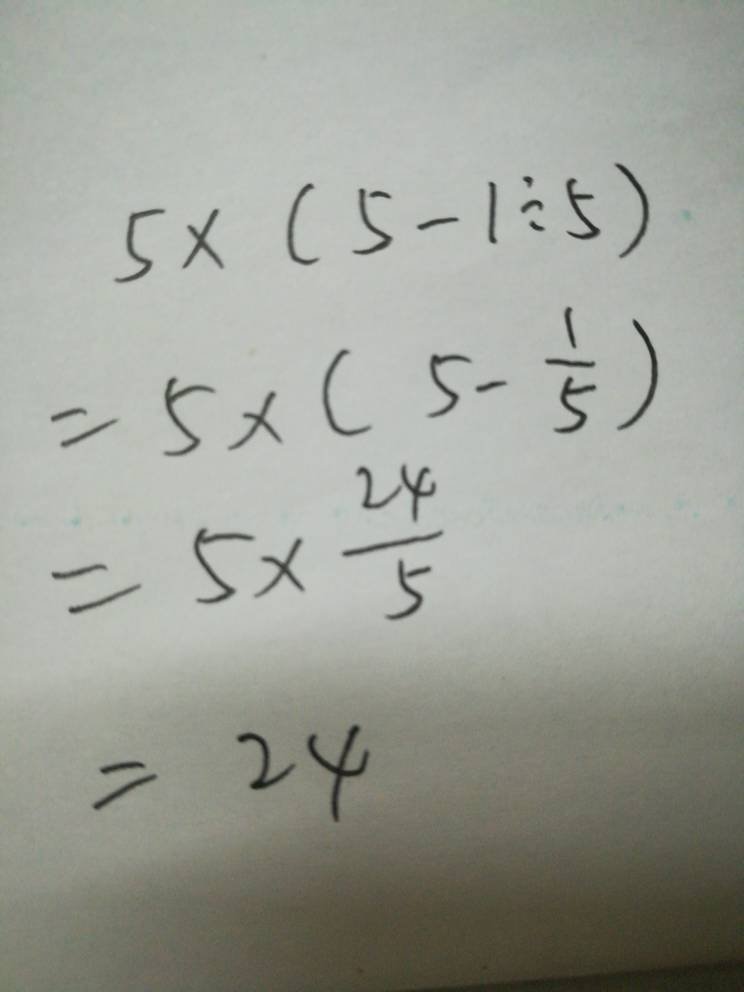 5×(5-1÷5)
=5×(5-1/5)
=5×24/5
=24